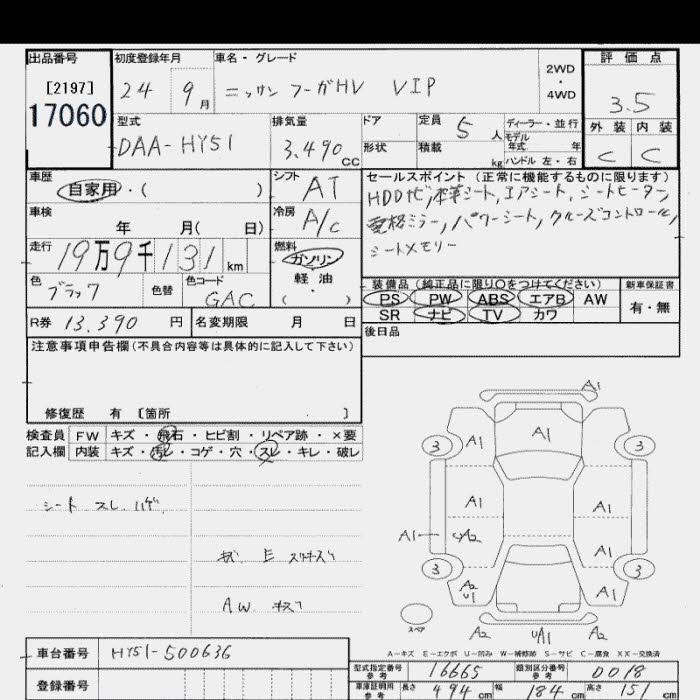 出品番号 初度登録年月 車名・グレード 評価点
[2197] 24 9月 ニッサン フーガHV VIP 2WD・4WD 3.5
17060 型式 排気量 ドア 定員 5人 ディーラー・並行 外装 内装
DAA-HY51 3.490cc 形状 積載 kg モデル年式 年 ハンドル 左・右 C C
車歴 自家用・( ) シフト AT セールスポイント (正常に機能するものに限ります)
車検 年 月( 日) 冷房 A/C HDDナビ,本革シート,エアシート,シートヒーター,
走行 19万9千131km 燃料 ガソリン 軽油・( ) 電格ミラー,パワーシート,クルーズコントロール,
シートメモリー
色 ブラック 色替 色コード GAC 装備品 (純正品に限り○をつけてください) 新車保証書
PS PW ABS エアB AW 有・無
R券 13.390円 名変期限 月 日 SR ナビ TV カワ
後日品
注意事項申告欄(不具合内容等は具体的に記入して下さい)
修復歴 有 [箇所 ]
検査員 FW キズ・飛石・ヒビ割・リペア跡・×要
記入欄 内装 キズ・汚レ・コゲ・穴・スレ・キレ・破レ
シート スレ.ハゲ.
E スリキズ
AW キズ
A1
3 A1 A1 3
A1 A1
A1 A2 A1
3 A2 U1 A1 3
スペア A2 UA1 A2
A-キズ E-エクボ U-凹み W-補修跡 S-サビ C-腐食 XX-交換済
車台番号 HY51-500636
登録番号
型式指定番号参考 16665 類別区分番号参考 0018
車庫証明用参考 長さ 494cm 幅 184cm 高さ 151cm